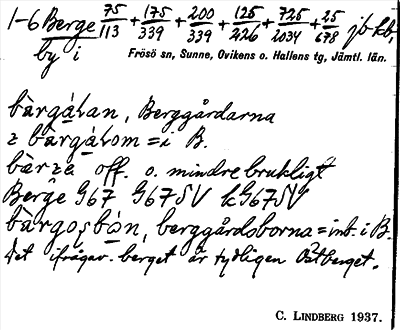 1-6 Berge 75/113 + 175/339 + 200/339 + 125/226 + 725/2034 + 25/678 jb kb,
by i Frösö sn, Sunne, Ovikens o. Hallens tg, Jämtl. län.
bàrgáɩan, Berggårdarna
z bàrgáɩom = i B.
bàrzè off. o. mindre brukligt
Berge G67 G67SV kG67SV
bàrgosbón, berggårdsborna = inb. i B.
Det ifrågav. berget är tydligen Östberget.
C. LINDBERG 1937.